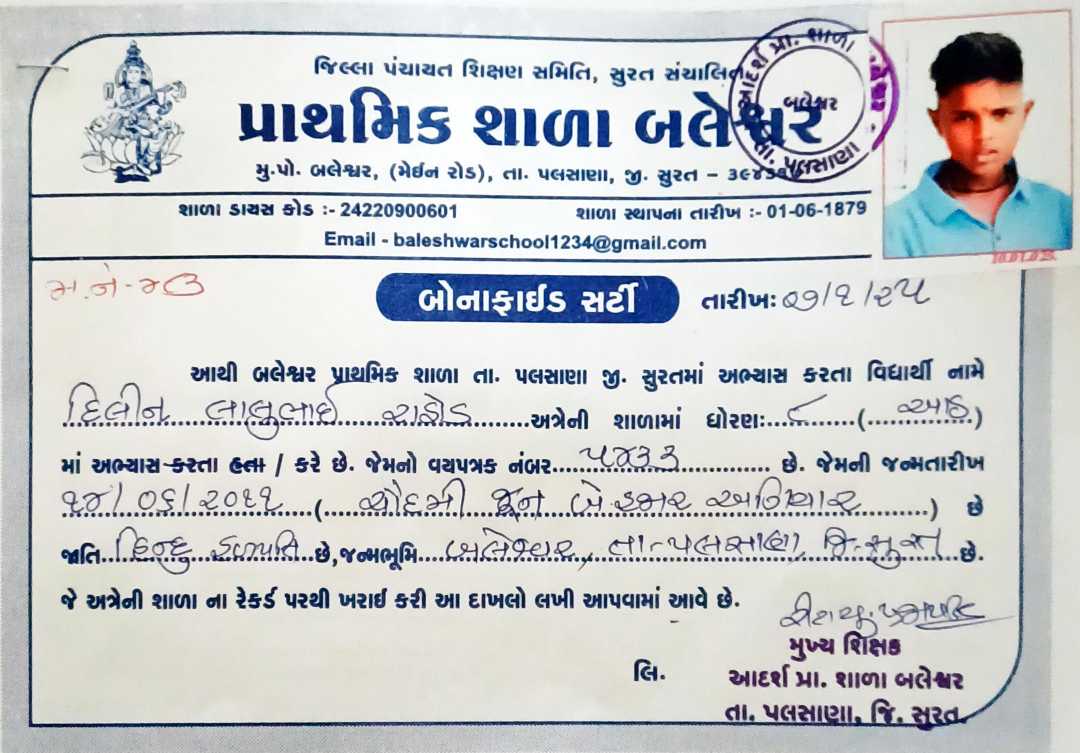 જિલ્લા પંચાયત શિક્ષણ સમિતિ, સુરત સંચાલિત
પ્રાથમિક શાળા બલેશ્વર
મુ.પો. બલેશ્વર, (મેઈન રોડ), તા. પલસાણા, જી. સુરત -
આદર્શ પ્રા. શાળા
બલેશ્વર
તા. પલસાણા
શાળા ડાયસ કોડ :- 24220900601 શાળા સ્થાપના તારીખ :- 01-06-1879
Email - baleshwarschool1234@gmail.com
બોનાફાઈડ સર્ટી તારીખઃ ૦૭/૧/૨૫
આથી બલેશ્વર પ્રાથમિક શાળા તા. પલસાણા જી. સુરતમાં અભ્યાસ કરતા વિદ્યાર્થી નામે
લાલુભાઈ રાઠોડ અત્રેની શાળામાં ધોરણઃ ૮ (આઠ)
માં અભ્યાસ કરતા હતા / કરે છે. જેમનો વયપત્રક નંબર ૫૪૩૩ છે. જેમની જન્મતારીખ
૧૪/૦૬/૨૦૧૧ (ચૌદમી જૂન બે હજાર અગિયાર) છે
જાતિ હિન્દુ હળપતિ છે, જન્મભૂમિ બલેશ્વર, તા-પલસાણા, જિ-સુરત છે.
જે અત્રેની શાળા ના રેકર્ડ પરથી ખરાઈ કરી આ દાખલો લખી આપવામાં આવે છે.
મુખ્ય શિક્ષક
લિ. આદર્શ પ્રા. શાળા બલેશ્વર
તા. પલસાણા, જિ. સુરત.